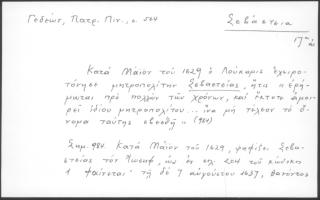 Γεδεών, Πατρ. Πιν., σ. 564
Σεβάστεια
17ος αἰ
Κατά Μάϊον τοῦ 1629 ὁ Λούκαρις ἐχειρο-
τόνησε μητροπολίτην Σεβαστείας, ἥτις "ἐρή-
μωται πρό πολλῶν τῶν χρόνων, καί ἔκτοτε ἀμοι-
ρεῖ ἰδίου μητροπολίτου... ἵνα μή τέλεον τό ὄ-
νομα ταύτης σβεσθῇ" (984)
Σημ. 984. Κατά Μάϊον τοῦ 1629, ψηφίζει Σεβα-
στείας τόν Ἰωσήφ, ὡς ἐν σελ. 254 τοῦ κώδικος
1 φαίνεται· τῇ δέ 7 αὐγούστου 1637, θανόντος